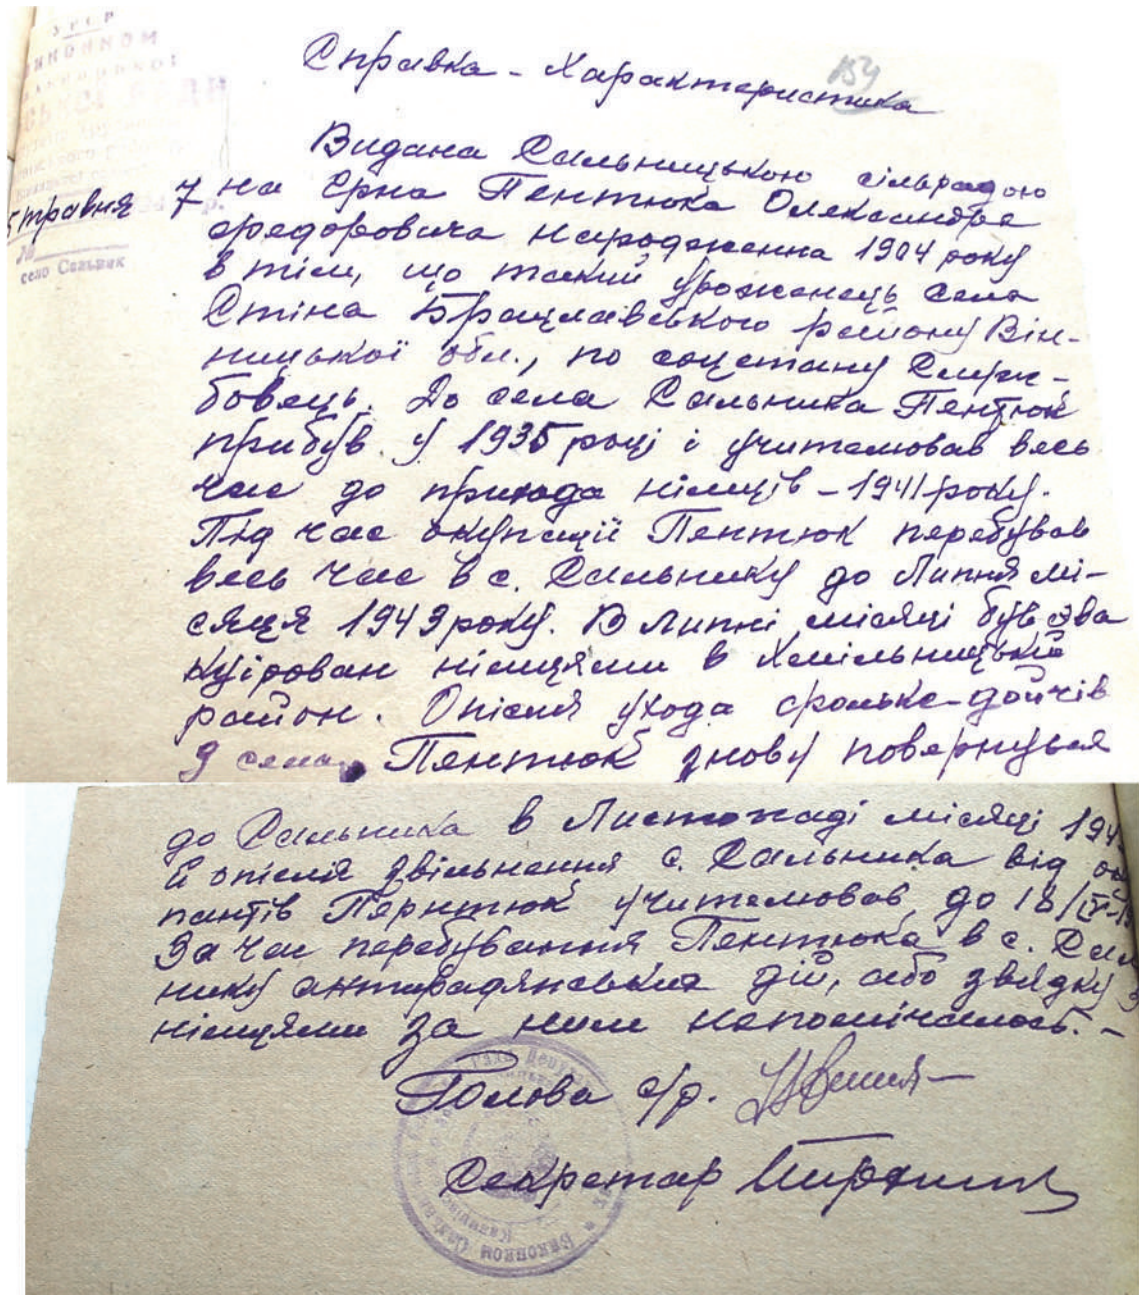 УРСР
ВИКОНКОМ
154
Справка - Характеристика
Видана Сальницькою сільрадою
5 травня 7 р. на Грна Пентюка Олександра
Федоровича народження 1904 року
В тім, що такий уроженець села
Стіна Брацлавського району Він-
ницької обл., по соцстану Служ-
бовець. До села Сальника Пентюк
прибув у 1935 році і учителював весь
час до прихода німців - 1941 року.
Під час окупації Пентюк перебував
весь час в с. Сальнику до Липня мі-
сяця 1943 року. В Липні місяці був эва
куірован німцями в Хмільницький
район. Опісля ухода фольке-дойчів
з села, Пентюк знову повернувся
№
село Сальник
до Сальника в Листопаді місяці 194
й опісля звільнення с. Сальника від
пантів Пернтюк учителював до 18/IV
За час перебування Пентюка в с. Саль
нику антирадянських дій, або звядку з
німцями за ним непомічалось. -
Голова с/р.
Секретар